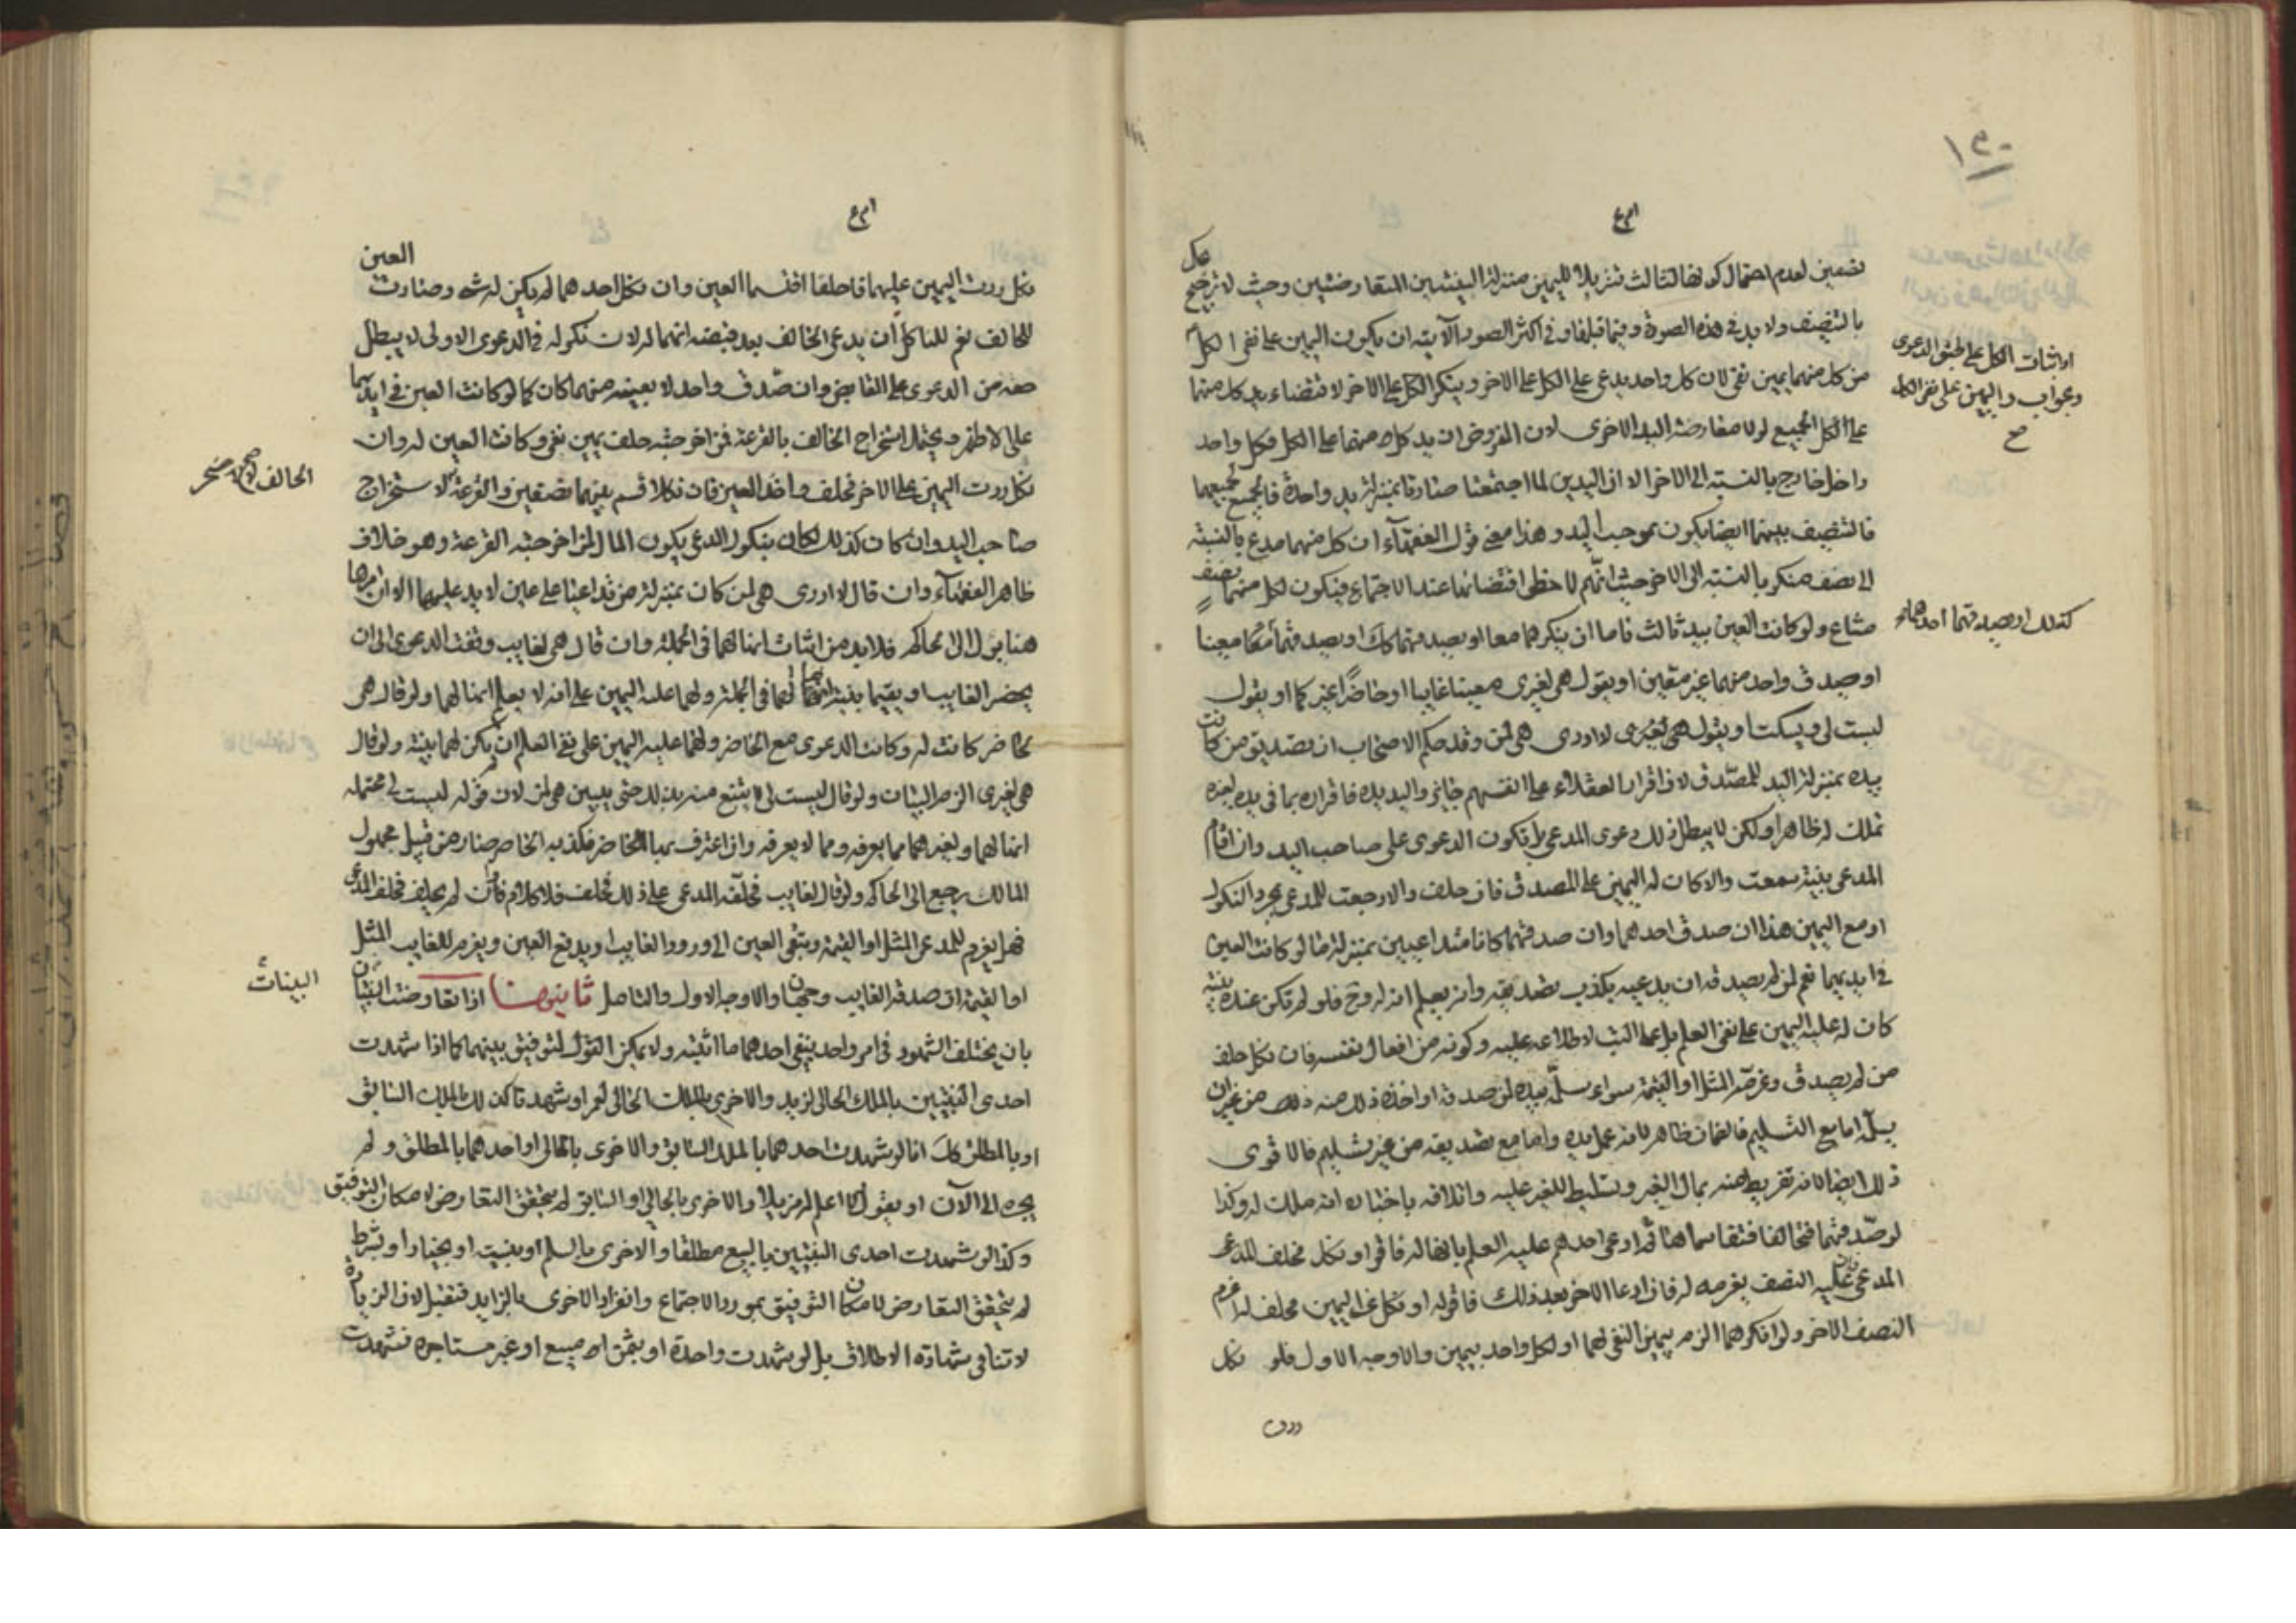 نصفين لعدم احتمال كونها لثالث تنزيلا لليمين منزلة البينتين المتعارضتين وحيث لا ترجيح
بالتنصيف ولا بد في هذه الصورة وفيما قبلها وفي اكثر الصور الآتية ان يكون اليمين على نفي الكل
من كل منهما يمين نفي لان كل واحد يدعي على الكل على الاخر وينكر الكل على الاخر لاقتضاء يد كل منهما
على الكل الجميع لولا معارضة اليد الاخرى لان المفروض ان يد كل منهما على الكل فكل واحد
داخل خارج بالنسبة الى الاخر الا ان اليدين لما اجتمعتا صارتا بمنزلة يد واحدة فالجميع لجميعهما
فالتنصيف بينهما ايضا يكون بموجب اليد وهذا معنى قول الفقهاء ان كل منهما مدع بالنسبة
الى نصف منكر بالنسبة الى الاخر حيث انهم لاحظوا اقتضائها عند الاجتماع فيكون لكل منهما نصف
مشاع ولو كانت العين بيد ثالث فاما ان ينكرهما معا او يصدقهما كك او يصدقهما معينا
او يصدق واحد منهما غير معين او يقول هي لغيري معينا غايبا او حاضرا غيركما او يقول
ليست لي ويسكت او يقول هي لغيري لا ادري هي لمن وقد حكم الاصحاب ان تصديق من كانت
بيده بمنزلة اليد للمصدق لان اقرار العقلاء على انفسهم جايز واليد يده فاقراره بما في يده لغيره
تملك له ظاهرا ولكن لا يبطل ذلك دعوى المدعي بل تكون الدعوى على صاحب اليد وان اقام
المدعي بينة سمعت والا كان له اليمين على المصدق فان حلف والا رجعت للمدعي بمجرد النكول
او مع اليمين هذا ان صدق احدهما وان صدقهما كانا متداعيين بمنزلة ما لو كانت العين
في ايديهما نعم لمن لم يصدقه ان يدعيه بكذب تصديقه وانه يعلم انه له وح فلو لم تكن عنده بينة
كان له عليه اليمين على نفي العلم بل على البت لاطلاعه عليه وكونه من افعال نفسه فان نكل حلف
من لم يصدق وغرمه المثل او القيمة سواء سلمه بيده لمن صدقه او اخذه ذلك منه ذلك من غير ان
يسلمه اما مع التسليم فالضمان ظاهر لانه عمل يده واما مع تصديقه من غير تسليم فالاقوى
ذلك ايضا لانه تفريط منه بمال الغير وتسليط للغير عليه واتلافه باخباره انه ملك له وكذا
لو صدقهما فتحالفا فتقاسماها ثم ادعى احدهم عليه العلم بانها له فاقر او نكل فحلف المدعي
المدعى عليه النصف بغرمه له فان ادعا الاخر بعد ذلك فاقر له او نكل عن اليمين فحلف له اغرم
النصف الاخر ولو انكرهما الزم بيمين النفي لهما او لكل واحد بيمين والاوجه الاول فلو نكل
او اثبات الكل على طبق الدعوى
وجواب واليمين على نفي الكل
صح
كذلك او يصدقهما احدهما
نكل ردت اليمين عليهما فاحلفا اقتسما العين وان نكل احدهما لم يكن له شيء وصارت العين
للحالف نعم للناكل ان يدعي الحالف بعد قبضه انها له لان نكوله في الدعوى الاولى لا يبطل
حقه من الدعوى على القابض وان صدق واحد لا بعينه منهما كان كما لو كانت العين في ايديهما
على الاظهر ويحتمل استخراج الحالف بالقرعة فمن اخرجته حلف يمين نفي وكانت العين له وان
نكل ردت اليمين على الاخر فحلف واخذ العين فان نكلا قسم بينهما نصفين والقرعة لاستخراج
صاحب اليد وان كان كذلك لكان بنكول المدعي يكون المال لمن اخرجته القرعة وهو خلاف
ظاهر الفقهاء وان قال لا ادري هي لمن كان بمنزلة من تداعيا على عين لا يد عليها الا ان امرها
هنا يؤل الى الحاكم فلا بد من اثبات انها لهما في الجملة وان قال هي لغايب وقفت الدعوى الى ان
يحضر الغايب او يقيما بينة انها لهما في الجملة ولهما عليه اليمين على انه لا يعلم انها لهما ولو قال هي
لحاضر كانت له وكانت الدعوى مع الحاضر ولهما عليه اليمين على نفي العلم ان لم يكن لهما بينة ولو قال
هي لغيري الزم البيان ولو قال ليست لي لا ينتزع من يده حتى يبين هي لمن لان قوله ليست لي محتمله
انها لهما ولغيرهما مما يعرفه ومما لا يعرفه وان اعترف بها لحاضر فكذبه الحاضر صار من قبيل مجهول
المالك يرجع الى الحاكم ولو قال لغايب فحلفه المدعي على ذلك فحلف فلا كلام فان لم يحلف فحلف المدعي
فهل يغرم للمدعي المثل او القيمة وتبقى العين الى ورود الغايب او يدفع العين ويغرم للغايب المثل
او القيمة ان صدقه الغايب وجهان والاوجه الاول والتاصل ثانيها اذا تعارضت البينتان
بان يختلف الشهود في امر واحد ينفي احدهما ما اثبته ولا يمكن القول لتوفيق بينهما كما اذا شهدت
احدى البينتين بالملك الحالي لزيد والاخرى بالملك الحالي لعمر او شهدتا كذلك بالملك السابق
او بالمطلق كك اما لو شهدت احدهما بالملك السابق والاخرى بالحالي او احدهما بالمطلق ولم
يجره الى الآن او يقول لا اعلم له مزيلا والاخرى بالحالي او السابق لم يتحقق التعارض لامكان التوفيق
وكذا لو شهدت احدى البينتين بالبيع مطلقا والاخرى بالسلم او بنسية او بخيار او بشرط
لم يتحقق التعارض لامكان التوفيق بمورد الاجتماع وانفراد الاخرى بالزايد فتقبل لان الزيادة
لا تنافي شهادة الاطلاق بل لو شهدت واحدة او بثمن او مبيع او عين مستاجرة فشهدت
الحالف
البينات